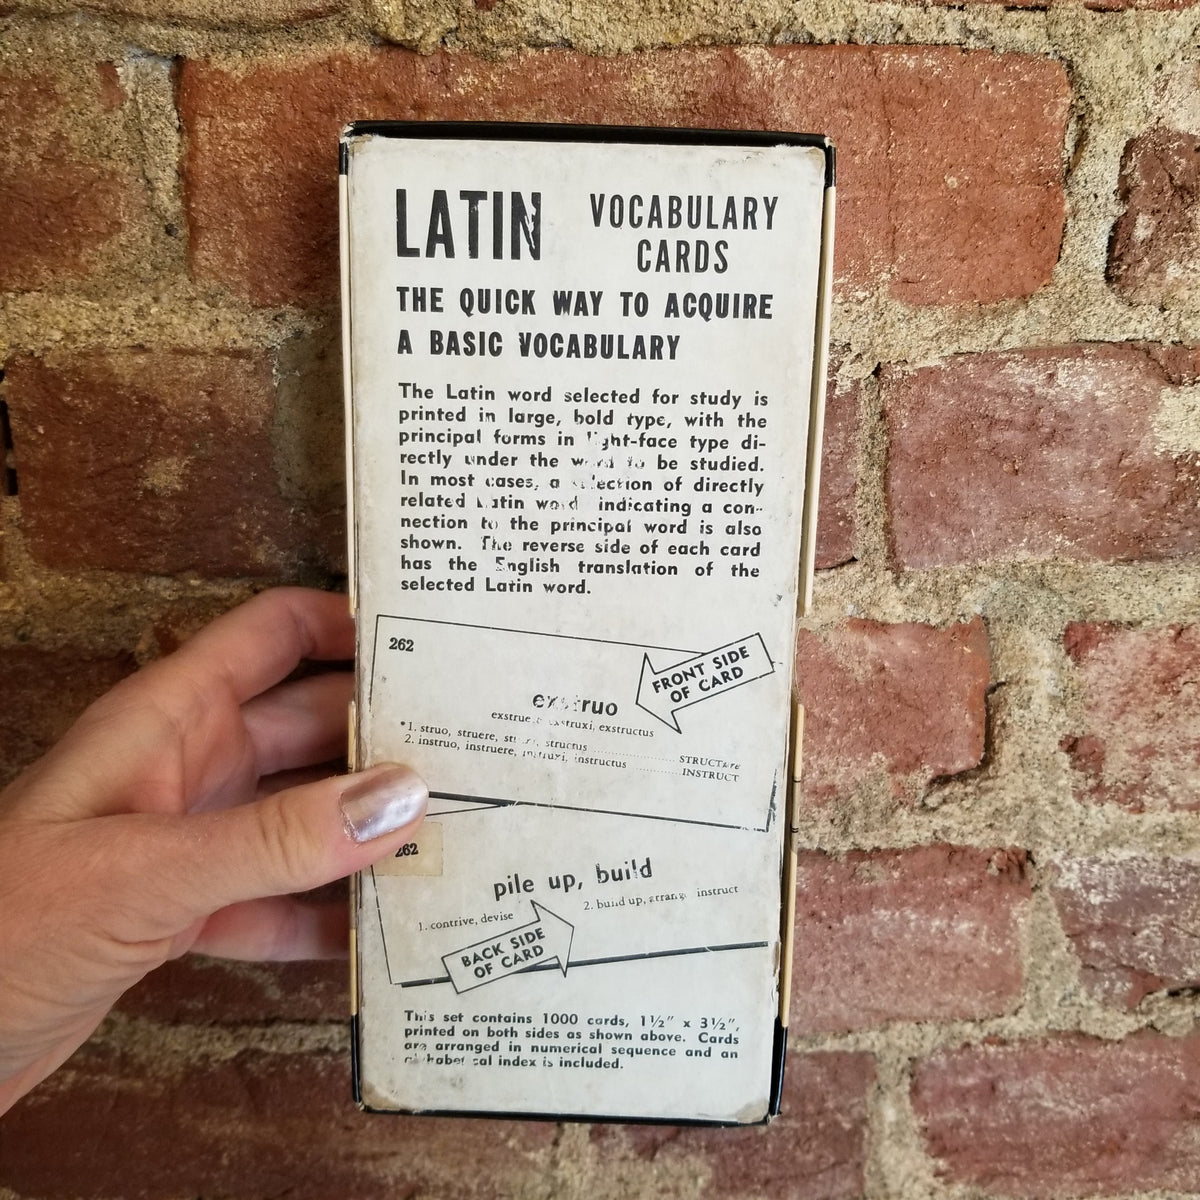 LATIN VOCABULARY
CARDS
THE QUICK WAY TO ACQUIRE
A BASIC VOCABULARY
The Latin word selected for study is
printed in large, bold type, with the
principal forms in light-face type di-
rectly under the word to be studied.
In most cases, a selection of directly
related Latin word indicating a con-
nection to the principal word is also
shown. The reverse side of each card
has the English translation of the
selected Latin word.
262
FRONT SIDE
OF CARD
exstruo
exstruere, exstruxi, exstructus
*1. struo, struere, struxi, structus .................... STRUCTure
2. instruo, instruere, instruxi, instructus ............ INSTRUCT
262
pile up, build
1. contrive, devise 2. build up, arrange, instruct
BACK SIDE
OF CARD
This set contains 1000 cards, 1½" x 3½",
printed on both sides as shown above. Cards
are arranged in numerical sequence and an
alphabetical index is included.